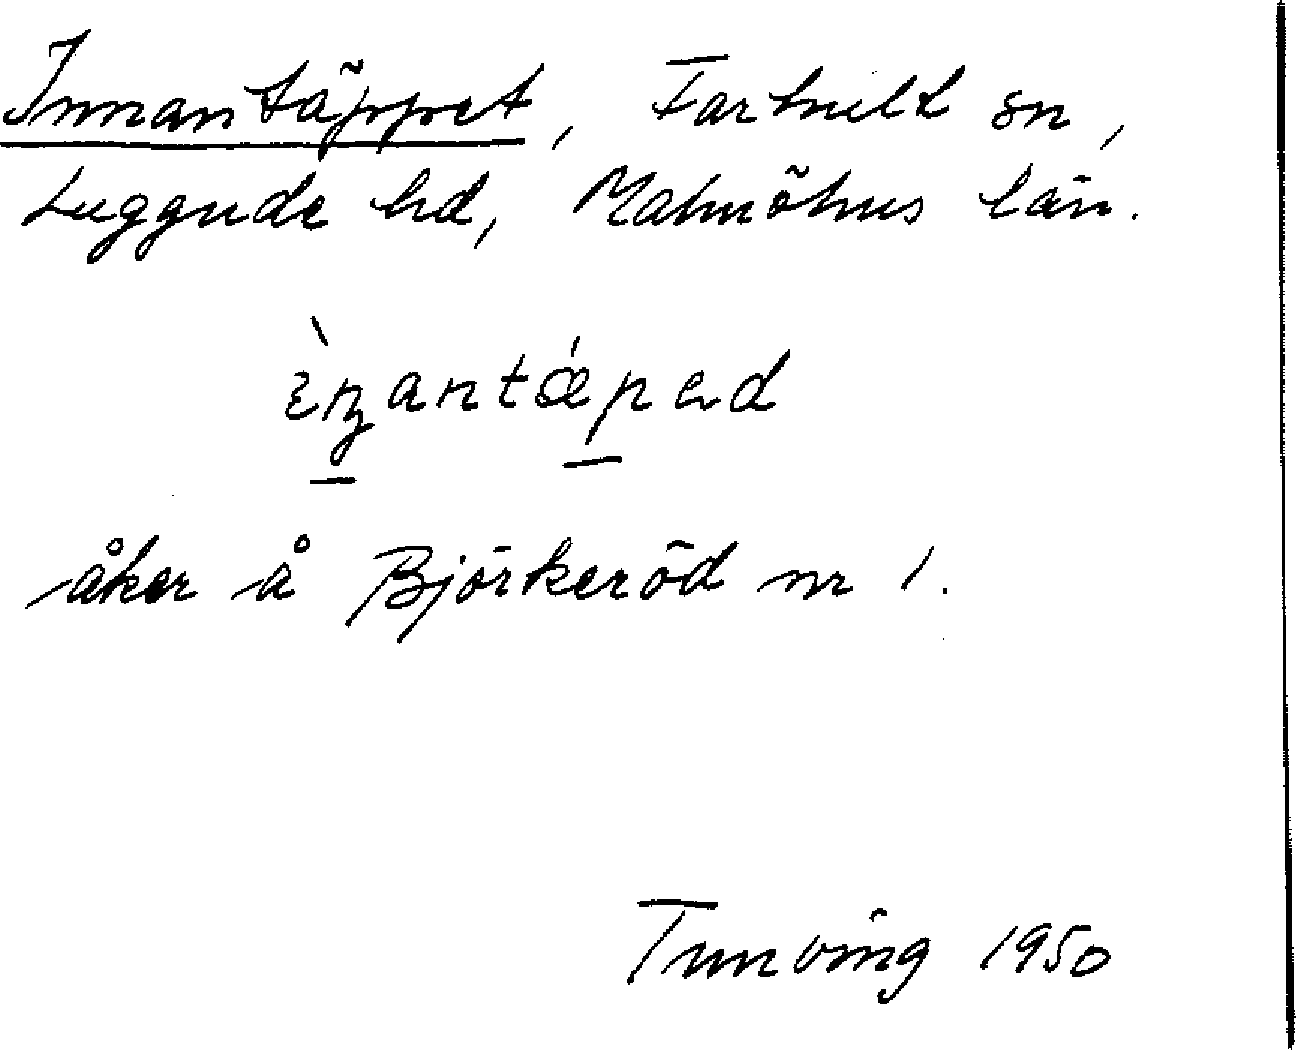 Innantäppet, Farhult sn,
Luggude hd, Malmöhus län.
åker å Björkeröd nr 1.
Tunving 1950